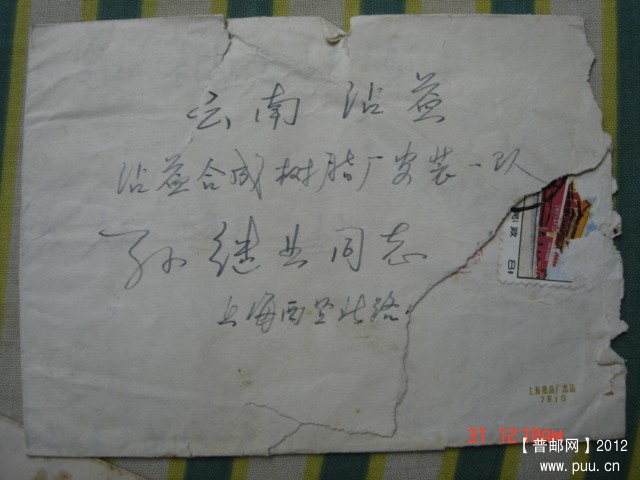 云南沾益
沾益合成树脂厂安装一队
孙继业同志
上海西康北路
邮政
8
上海纸品厂出品
7810
31 12:10AM
【普邮网】2012
www.puu.cn